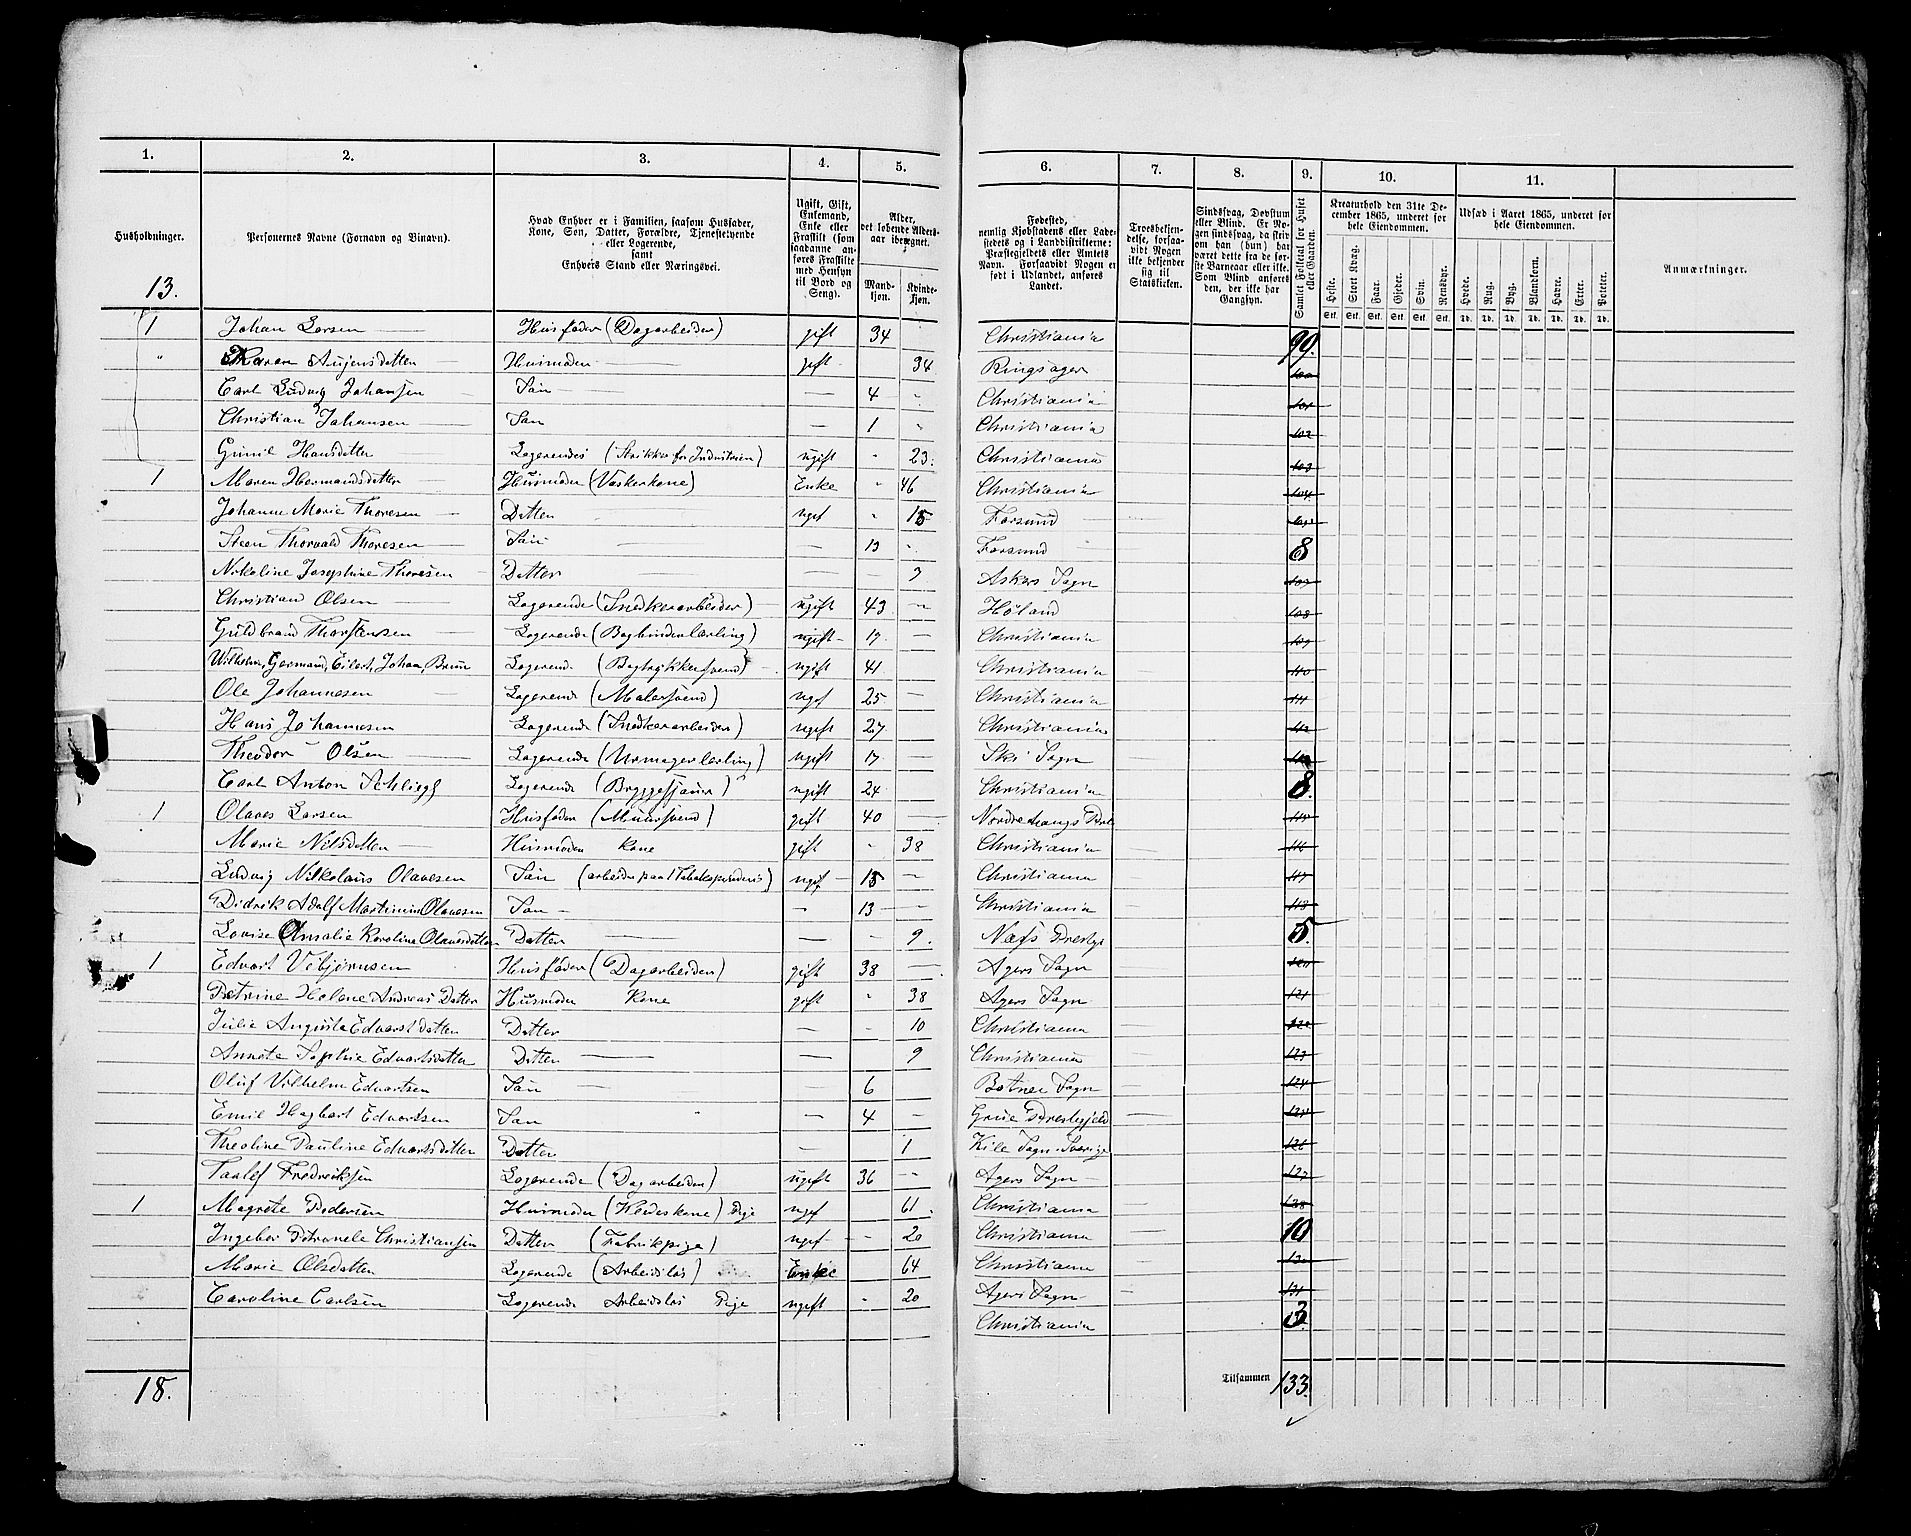 1. 2. 3. 4. 5. 6. 7. 8. 9. 10. 11.
Husholdninger. Personernes Navne (Fornavn og Tilnavn). Hvad Enhver er i Familien, saasom Husfader, Kone, Søn, Datter, Forældre, Tjenestetyende eller Logerende, samt Enhvers Stand eller Næringsvei. Ugift, Gift, Enkemand, Enke eller Fraskilt (som saadanne anføres Fraskilte med Hensyn til Bord og Seng). Alder, det løbende Aldersaar iberegnet. Mandkjøn. Kvindekjøn. Fødested, nemlig Kjøbstadens eller Ladestedets og i Landdistrikterne: Præstegjeldets eller Amtets Navn. Forsaavidt Nogen er født i Udlandet, anføres Landet. Troesbekjendelse, forsaavidt Nogen ikke bekjender sig til Statskirken. Sindssvag, Døvstum eller Blind. Er Nogen sindssvag, da skrives om han (hun) har været dette fra de første Barneaar eller ikke. Som Blind anføres den, der ikke har Gangsyn. Samlet Folketal for Huset eller Gaarden. Kreaturhold den 31te December 1865, underet for hele Eiendommen. Udsæd i Aaret 1865, underet for hele Eiendommen. Anmærkninger.
Heste. Stort Kvæg. Faar. Gjeder. Svin. Rensdyr. Hvede. Rug. Byg. Blandkorn. Havre. Erter. Poteter.
Stk. Stk. Stk. Stk. Stk. Stk. Td. Td. Td. Td. Td. Td. Td.
13.
1 Johan Larsen Husfader (Dagarbeider) gift 34 Christiania 99.
" Karen Husmoder gift 34 Ringsager 100
Carl Ludvig Johansen Søn — 4 - Christiania 101
Christian Johansen Søn — 1 - Christiania 102
Gunil Hansdatter Logerendes (Strikker for Industrien) ugift - 23. Christiania 103
1 Maren Hermandsdatter Husmoder (Vaskerkone) Enke - 46 Christiania 104
Johanne Marie Thoresen Datter ugift - 15 Farsund
Steen Thorvald Thoresen Søn — 13 - Farsund 8
Nikoline Josephine Thoresen Datter — — 9 Askers Sogn 107
Christian Olsen Logerende (Snedkerarbeider) ugift 43 — Høland 108
Guldbrand Thorstensen Logerende (Bogbinderlærling) ugift 17 — Christiania 109
Wilhelm, Germand, Eilert, Johan, Brun Logerende (Bogtrykkersvend) ugift 41 Christiania 110
Ole Johannesen Logerende (Malersvend) ugift 25 — Christiania 111
Hans Johannesen Logerende (Snedkerarbeider) ugift 27 Christiania 112
Theodor Olsen Logerende (Urmagerlærling) ugift 17 — Ski Sogn
Carl Anton Logerende (Bryggesjauer) ugift 24 — Christiania 8.
1 Olaves Larsen Husfader (Muursvend) gift 40 — Nordrehaugs 115
Marie Nilsdatter Husmoder Kone gift - 38 Christiania 116
Ludvig Nikolaus Olavesen Søn ugift 15 — Christiania 117
Didrik Adolf Martinius Olavesen Søn — 13 — Christiania 118
Lovise Amalie Karoline Olavesdatter Datter — - 9. Næss 5.
1 Edvart Vebjørnsen Husfader (Dagarbeider) gift 38 — Agers Sogn 120
Petrine Helene Andreas Datter Husmoder Kone gift - 38 Agers Sogn 121
Julie Augusta Edvartsdatter Datter — - 10 Christiania 122
Annete Sophie Edvartsdatter Datter — 9 Christiania 123
Oluf Vilhelm Edvartsen Søn 6 Botner Sogn 124
Emil Hagbart Edvartsen Søn — 4 — Grue Prestegjeld 125
Theoline Pauline Edvartsdatter Datter — 1 Kile Sogn Sverige 126
Taalef Fredriksen Logerende (Dagarbeider) ugift 36 — Agers Sogn 127
1 Magrete Pedersen Husmoder Pige ugift 61. Christiania 128
Ingebor Petronele Christiansen Datter (Fabrikpige) ugift — 20 Christiania 10
Marie Olsdatter Logerende (Arbeidsløs) Enke 64 Christiania 130
Caroline Carlsen Logerende Arbeidsløs Pige ugift - 20 Agers Sogn 131
Christiania 3.
18. Tilsammen 133.